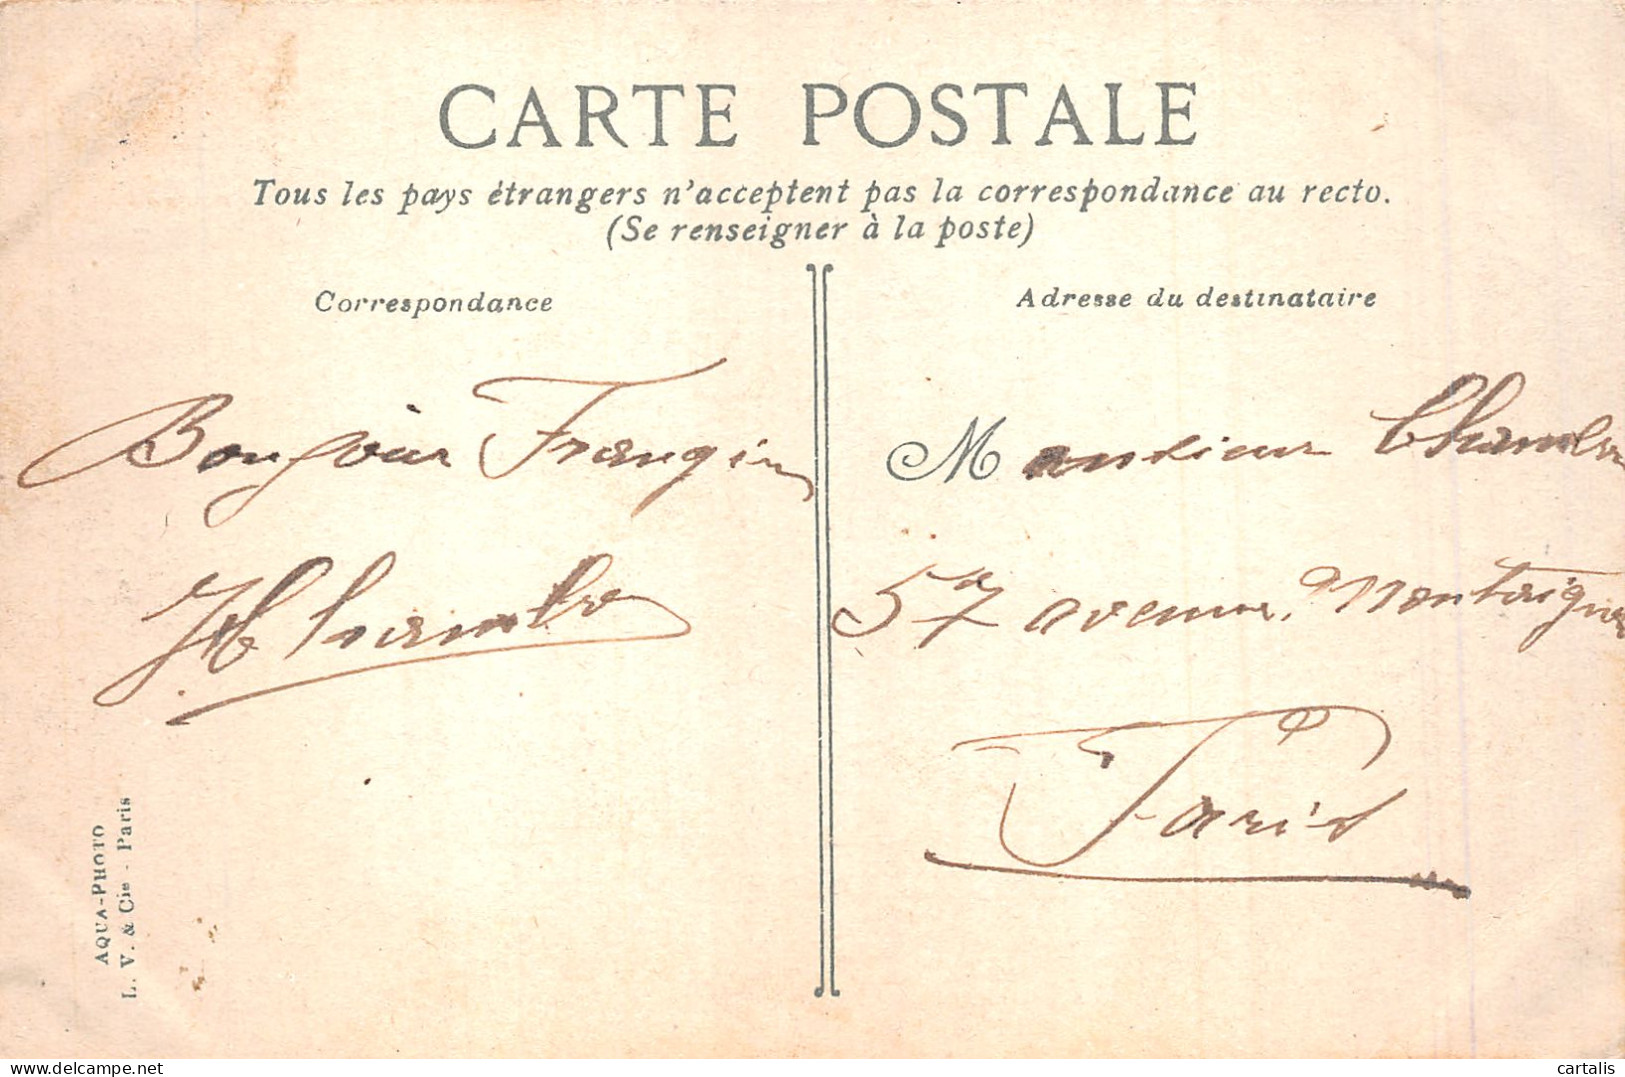 CARTE POSTALE
Tous les pays étrangers n'acceptent pas la correspondance au recto.
(Se renseigner à la poste)
Correspondance
Bonjour Frangin
Adresse du destinataire
Monsieur
57 avenue Montaigne
Paris
AQUA-PHOTO
L. V. & Cie - Paris
delcampe.net
cartalis